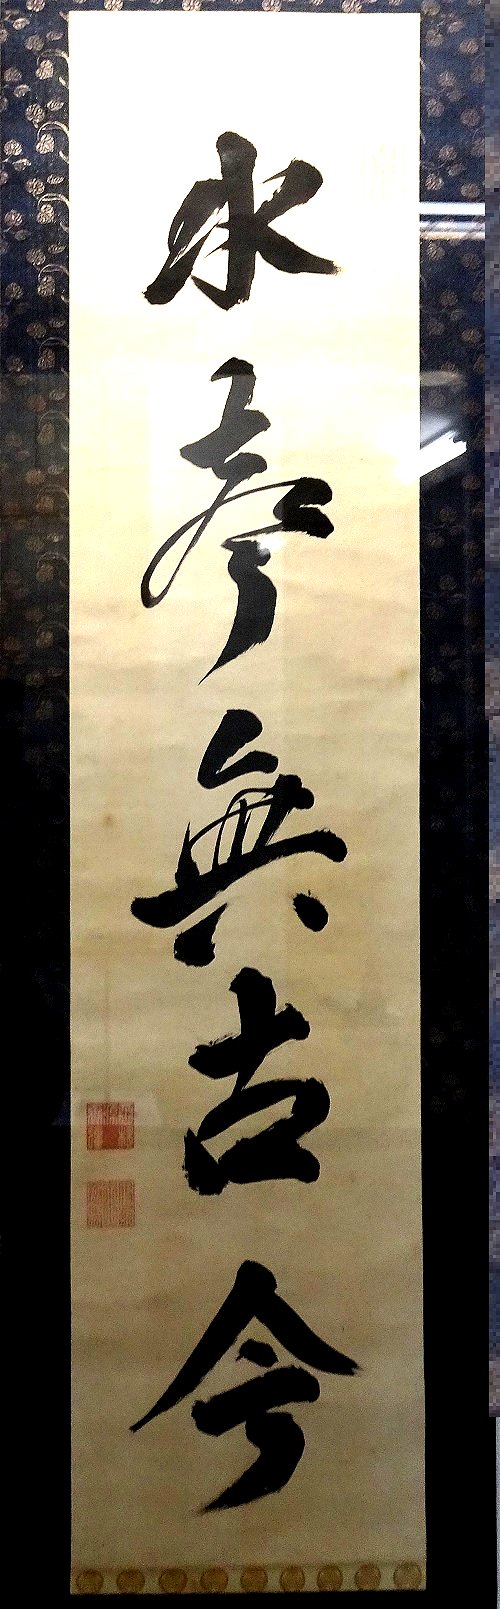 水声無古今